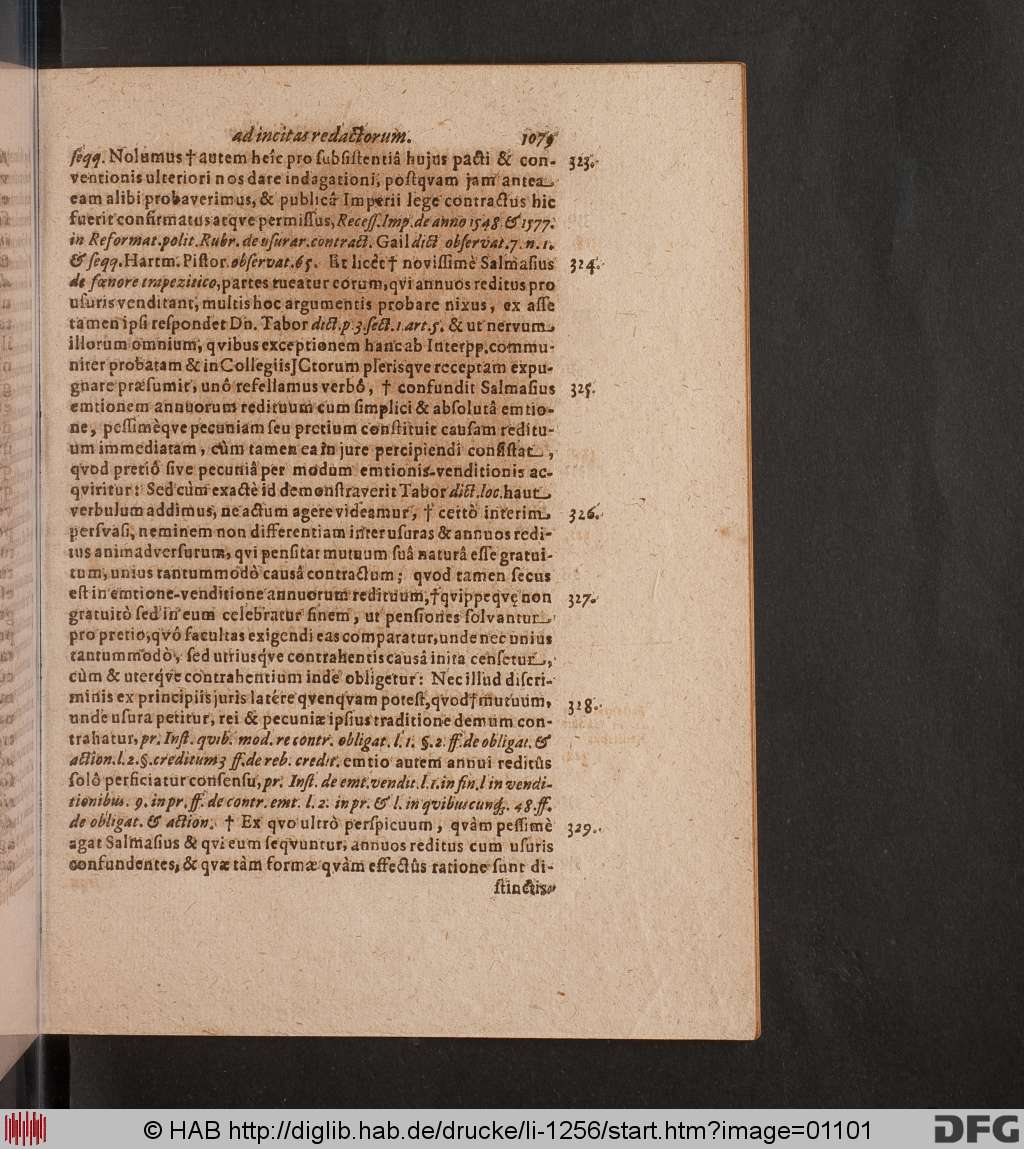 ad incitas redactorum. 1079
ſeqq. Nolumus † autem heîc pro ſubſiſtentiâ hujus pacti & con- 323.
ventionis ulteriori nos dare indagationi, poſtqvam jam antea
eam alibi probaverimus, & publicâ Imperii lege contractus hic
fuerit confirmatus atqve permiſſus, Receſſ. Imp. de anno 1548 & 1577.
in Reformat. polit. Rubr. de uſurar. contract. Gail dict obſervat. 7. n. 1.
& ſeqq. Hartm. Piſtor. obſervat. 65. Et licèt † noviſſimè Salmaſius 324.
de fœnore trapezitico, partes tueatur eorum, qvi annuos reditus pro
uſuris venditant, multis hoc argumentis probare nixus, ex aſſe
tamen ipſi reſpondet Dn. Tabor dict. p. 3. ſect. 1. art. 5. & ut nervum
illorum omnium, qvibus exceptionem hanc ab Interpp. commu-
niter probatam & in Collegiis JCtorum pleriſqve receptam expu-
gnare præſumit, unô refellamus verbô, † confundit Salmaſius 325.
emtionem annuorum redituum cum ſimplici & abſolutâ emtio-
ne, peſſimèqve pecuniam ſeu pretium conſtituit cauſam reditu-
um immediatam, cùm tamen ea in jure percipiendi conſiſtat,
qvod pretiô ſive pecuniâ per modum emtionis-venditionis ac-
qviritur: Sed cùm exactè id demonſtraverit Tabor dict. loc. haut
verbulum addimus, ne actum agere videamur, † certò interim 326.
perſvaſi, neminem non differentiam inter uſuras & annuos redi-
tus animadverſurum, qvi penſitat mutuum ſuâ naturâ eſſe gratui-
tum, unius tantummodò cauſâ contractum; qvod tamen ſecus
eſt in emtione-venditione annuorum redituum, † qvippeqvę non 327.
gratuitò ſed in eum celebratur finem, ut penſiones ſolvantur
pro pretio, qvô facultas exigendi eas comparatur, unde nec unius
tantummodò, ſed utriusq́ve contrahentis cauſâ inita cenſetur,
cùm & uterq́ve contrahentium inde obligetur: Nec illud diſcri-
minis ex principiis juris latére qvenqvam poteſt, qvod † mutuum, 328.
unde uſura petitur, rei & pecuniæ ipſius traditione demum con-
trahatur, pr. Inſt. qvib. mod. re contr. obligat. l. 1. §. 2. ff. de obligat. &
action. l. 2. §. creditum 3 ff. de reb. credit. emtio autem annui reditûs
ſolô perficiatur conſenſu, pr. Inſt. de emt. vendit. l. 1. in fin. l in vendi-
tionibus. 9. in pr. ff. de contr. emt. l. 2. in pr. & l. in qvibuscunq́;. 48. ff.
de obligat. & action. † Ex qvo ultrò perſpicuum, qvàm peſſimè 329.
agat Salmaſius & qvi eum ſeqvuntur, annuos reditus cum uſuris
confundentes, & qvæ tàm formæ qvàm effectûs ratione ſunt di-
ſtinctis-
© HAB http://diglib.hab.de/drucke/li-1256/start.htm?image=01101
DFG